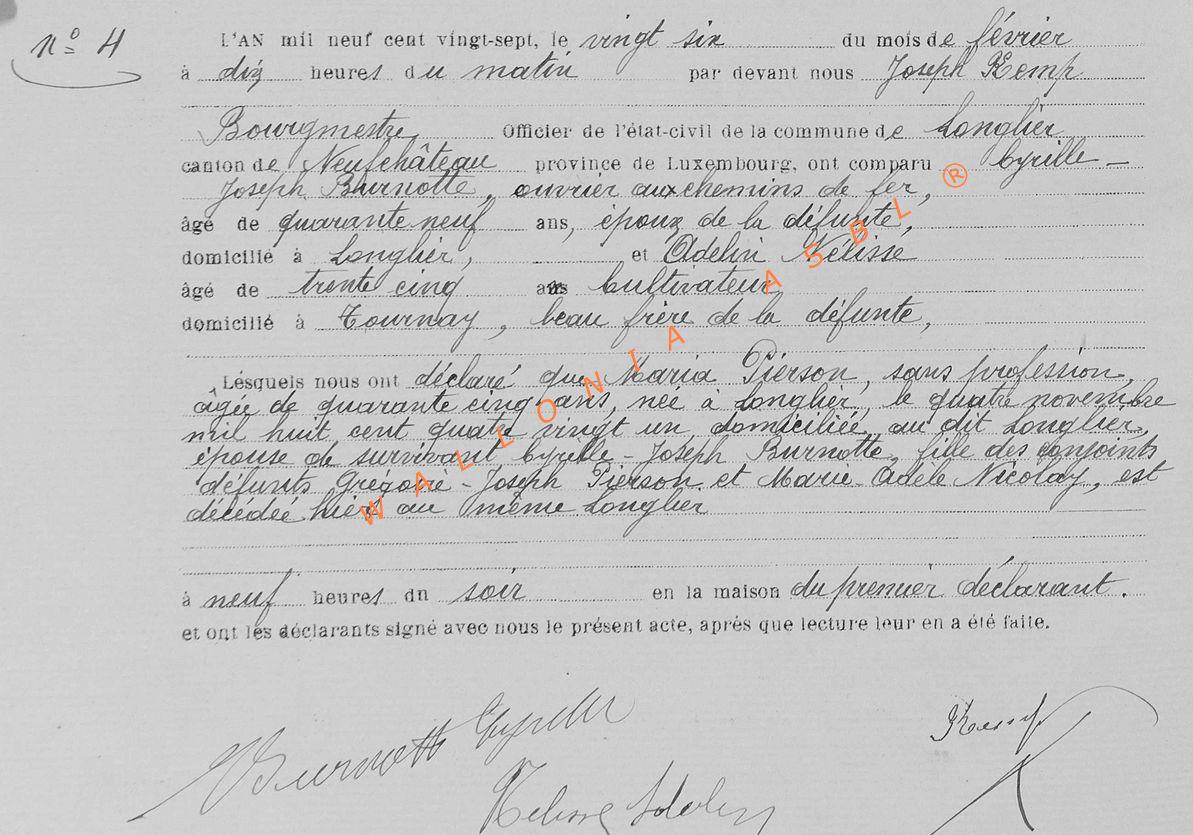 nº 4
L'AN mil neuf cent vingt-sept, le vingt six du mois de février
à dix heures du matin par devant nous Joseph Kemp
Bourgmestre, Officier de l'état-civil de la commune de Longlier
canton de Neufchâteau province de Luxembourg, ont comparu Cyrille -
Joseph Burnotte, ouvrier aux chemins de fer,
âgé de quarante neuf ans, époux de la défunte,
domicilié à Longlier, et Adelin Nélisse
âgé de trente cinq ans Cultivateur
domicilié à Tournay, beau frère de la défunte,
Lesquels nous ont déclaré que Maria Pierson, sans profession,
âgée de quarante cinq ans, née à Longlier, le quatre novembre
mil huit cent quatre vingt un domiciliée au dit Longlier,
épouse de survivant Cyrille - Joseph Burnotte, fille des conjoints
défunts Grégoire - Joseph Pierson et Marie-Adèle Nicolay, est
décédée hier au même Longlier
à neuf heures du soir en la maison du premier déclarant.
et ont les déclarants signé avec nous le présent acte, après que lecture leur en a été faite.
Burnotte Cyrille
Kemp
Nelisse Adelin
WALLONIA ASBL ®